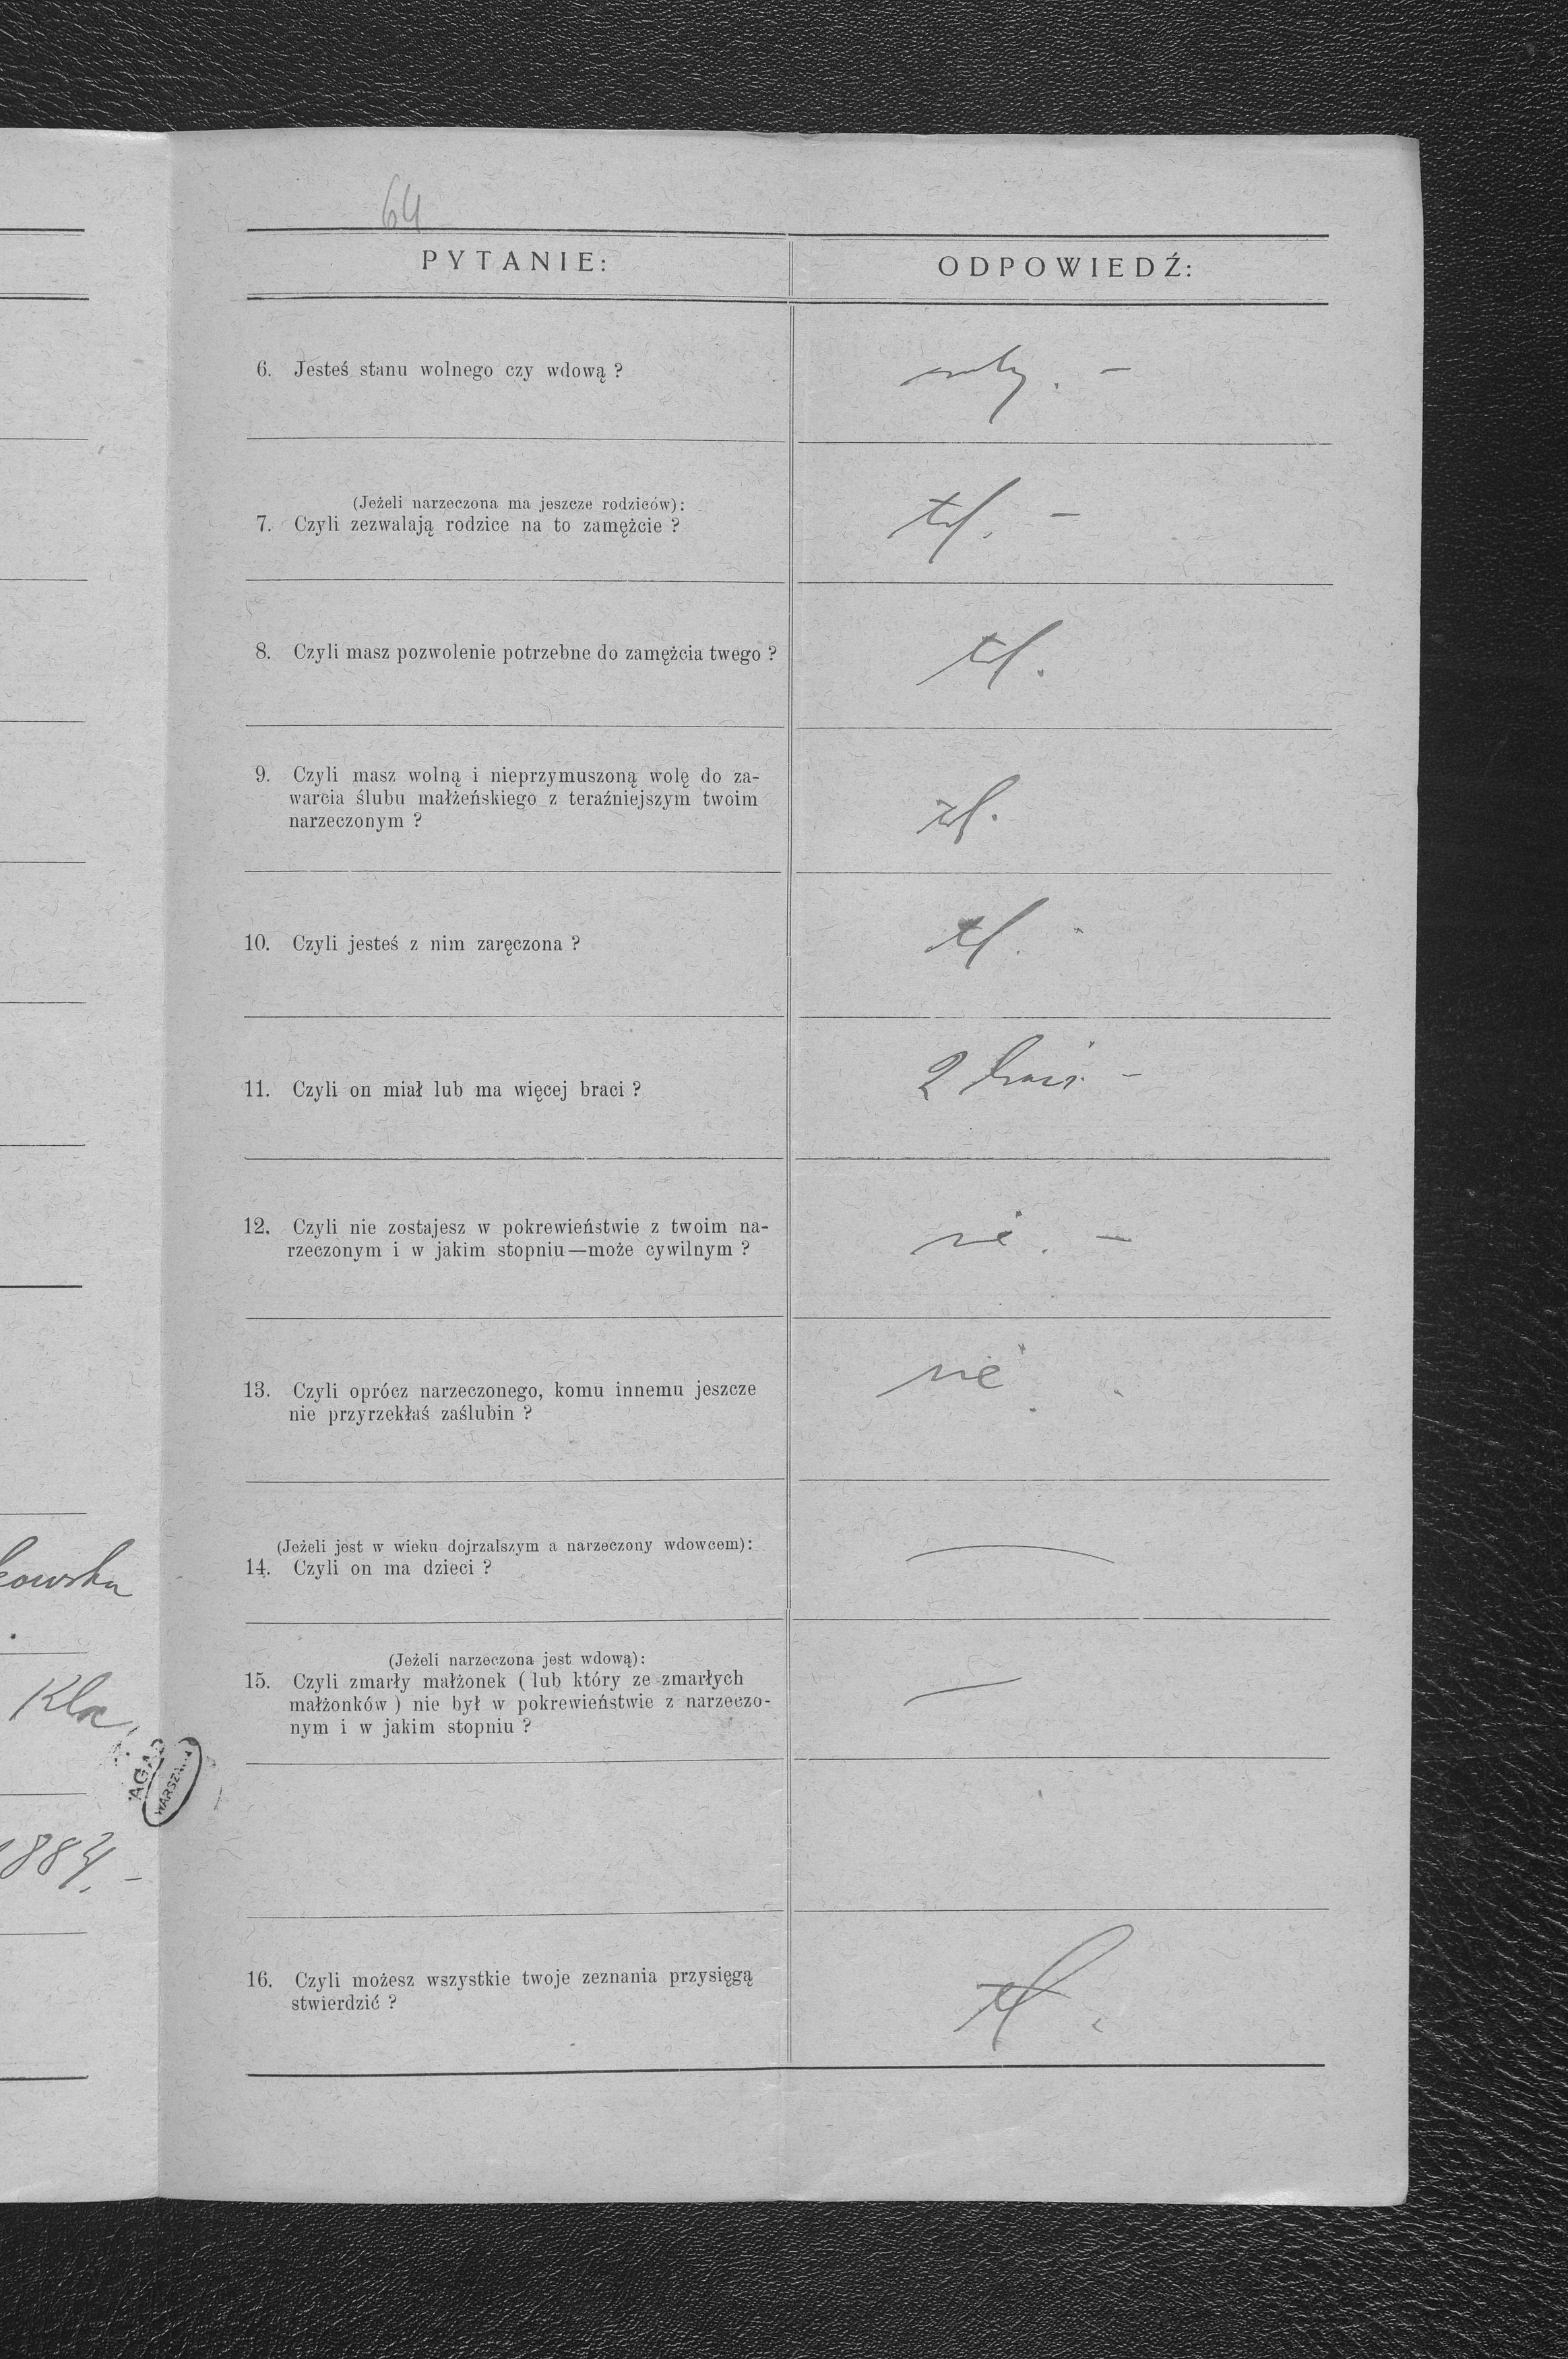 64
PYTANIE:
ODPOWIEDŹ:
6. Jesteś stanu wolnego czy wdową ?
(Jeżeli narzeczona ma jeszcze rodziców):
7. Czyli zezwalają rodzice na to zamężcie ?
8. Czyli masz pozwolenie potrzebne do zamężcia twego ?
9. Czyli masz wolną i nieprzymuszoną wolę do za-
warcia ślubu małżeńskiego z teraźniejszym twoim
narzeczonym ?
10. Czyli jesteś z nim zaręczona ?
11. Czyli on miał lub ma więcej braci ?
2 braci. —
12. Czyli nie zostajesz w pokrewieństwie z twoim na-
rzeczonym i w jakim stopniu—może cywilnym ?
nie. —
13. Czyli oprócz narzeczonego, komu innemu jeszcze
nie przyrzekłaś zaślubin ?
nie
(Jeżeli jest w wieku dojrzalszym a narzeczony wdowcem):
14. Czyli on ma dzieci ?
—
(Jeżeli narzeczona jest wdową):
15. Czyli zmarły małżonek ( lub który ze zmarłych
małżonków ) nie był w pokrewieństwie z narzeczo-
nym i w jakim stopniu ?
—
16. Czyli możesz wszystkie twoje zeznania przysięgą
stwierdzić ?
kowska
AGAD
1884. —